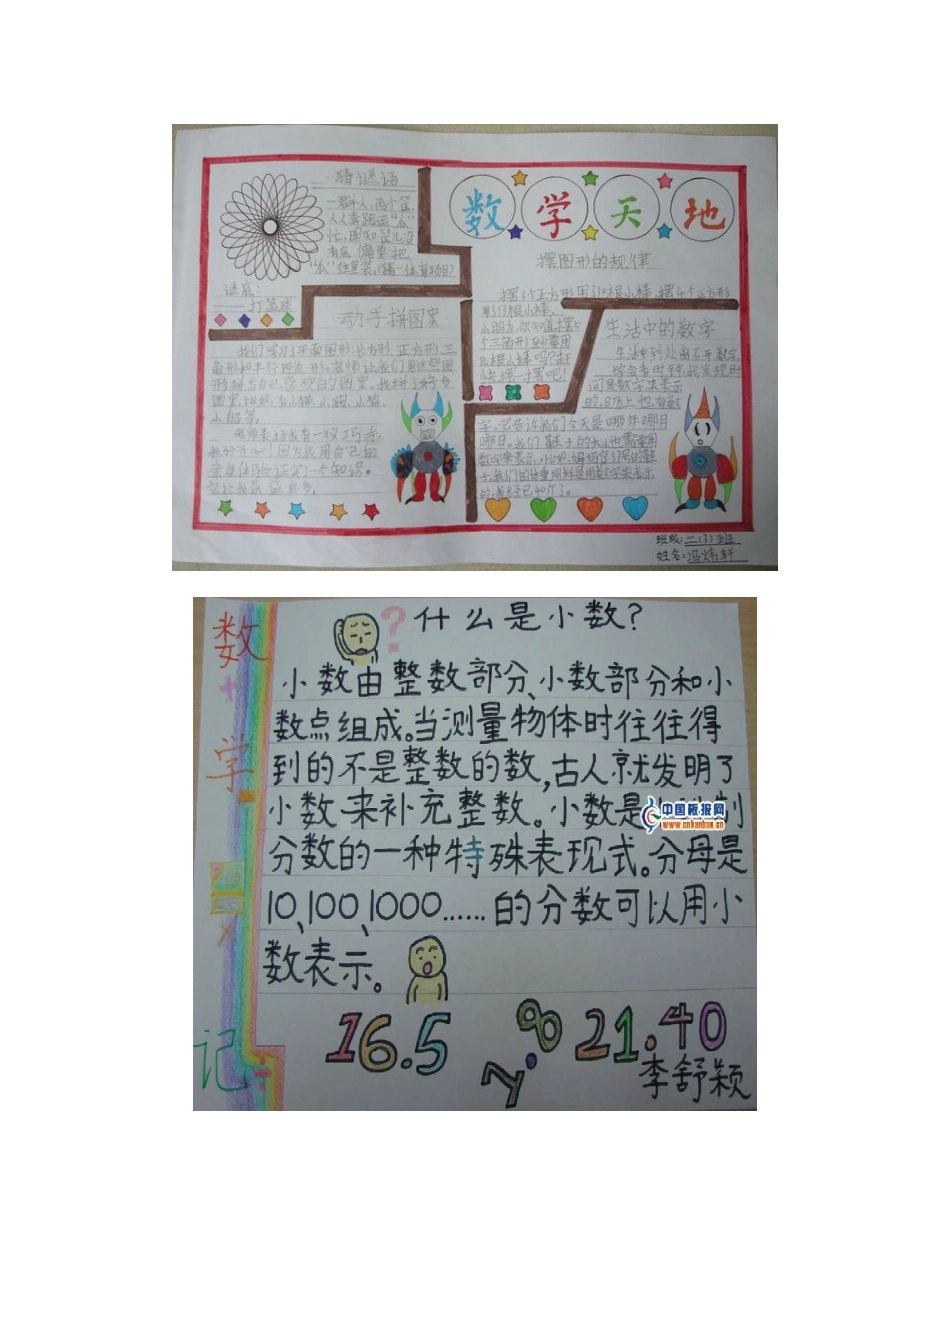 数学天地
猜谜语
一群人,两个筐,
人人奔跑
忙,
有底 偏要把
住里装。(猜一体育项目)
谜底:
打篮球
摆图形的规律
摆3个正方形用了10根小棒,摆4个正方形
用了13根小棒。
小朋友,你知道摆5
个三角形至少要用
几根小棒吗?赶
快摆一摆吧!
动手拼图案
我们学习了平面图形:长方形、正方形、三
角形和平行四边形。老师让我们用这些图
形拼出自己喜欢的图案。我拼了好多
图案,比如,有小猫、小狗、小鸡、
小船等。
老师表扬我有一双巧手,
我好开心!因为我用自己的
亲身体验证实了一个知识。
生活中的数字
生活中到处离不开数字,
时间是数字来表示
的,日历上也有数
字,它告诉我们今天是哪年哪月
哪日。我们鞋子的大小也需要用
数字来表示,比如,妈妈穿37号的鞋
子,我们的体重同样是用数字来表示
的,
班级:二(3)班
姓名:冯炜轩
数学记
什么是小数?
小数由整数部分、小数部分和小
数点组成。当测量物体时往往得
到的不是整数的数,古人就发明了
小数来补充整数。小数是 制
分数的一种特殊表现式。分母是
10、100、1000……的分数可以用小
数表示。
16.5
21.40
李舒颖
中国板报网
www.cnbanbao.cn